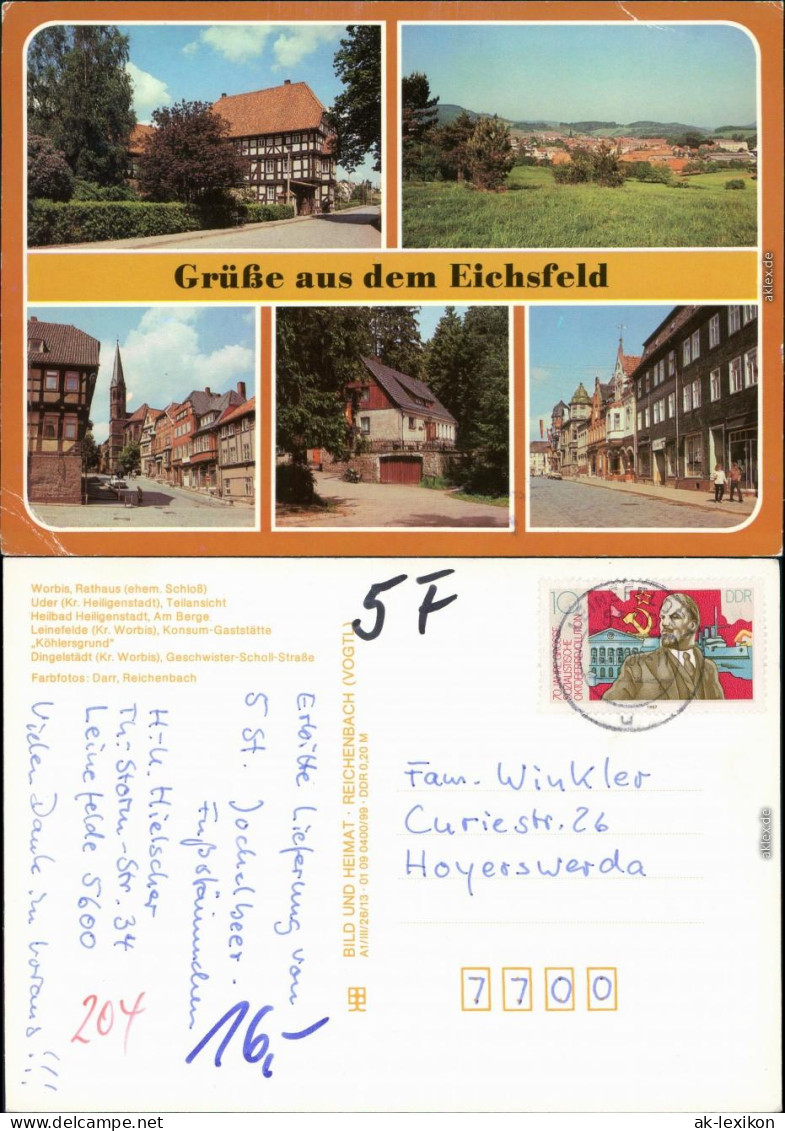 Grüße aus dem Eichsfeld
aklex.de
Worbis, Rathaus (ehem. Schloß)
Uder (Kr. Heiligenstadt), Teilansicht
Heilbad Heiligenstadt, Am Berge
Leinefelde (Kr. Worbis), Konsum-Gaststätte
„Köhlersgrund"
Dingelstädt (Kr. Worbis), Geschwister-Scholl-Straße
Farbfotos: Darr, Reichenbach
5 F
10
DDR
70 JAHRE GROSSE
SOZIALISTISCHE
OKTOBERREVOLUTION
1987
u
BILD UND HEIMAT · REICHENBACH (VOGTL)
A1/III/26/13 · 01 09 0400/99 · DDR 0,20 M
Erbitte Lieferung von
5 St.
Fußstämmchen
H.-U. Hielscher
Th.-Storm-Str. 34
Leinefelde 5600
Vielen Dank im voraus!!!
204
16,-
Fam. Winkler
Curiestr. 26
Hoyerswerda
7700
aklex.de
ak-lexikon